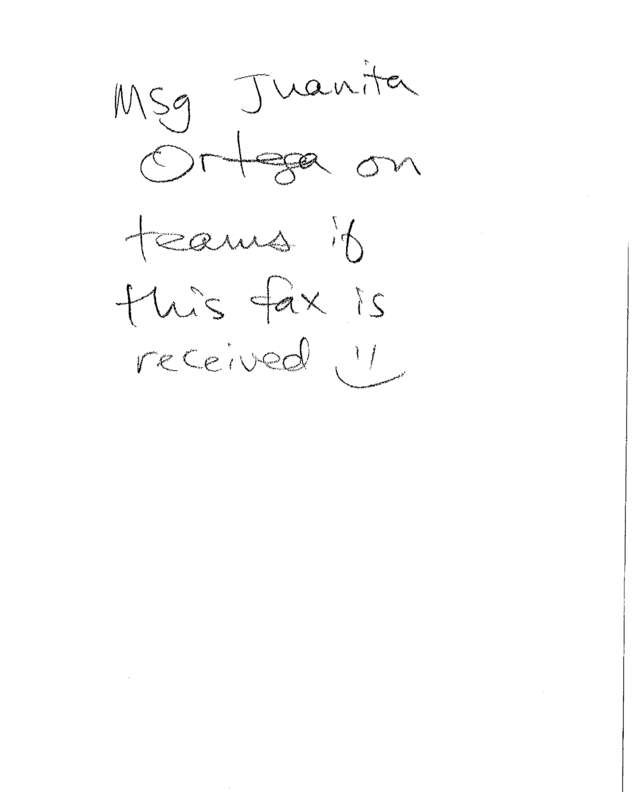 Msg Juanita
Ortega on
teams if
this fax is
received